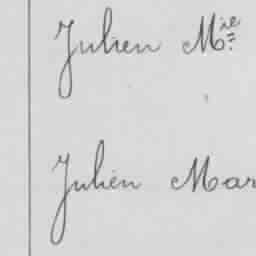 Julien Mie
Julien Mar